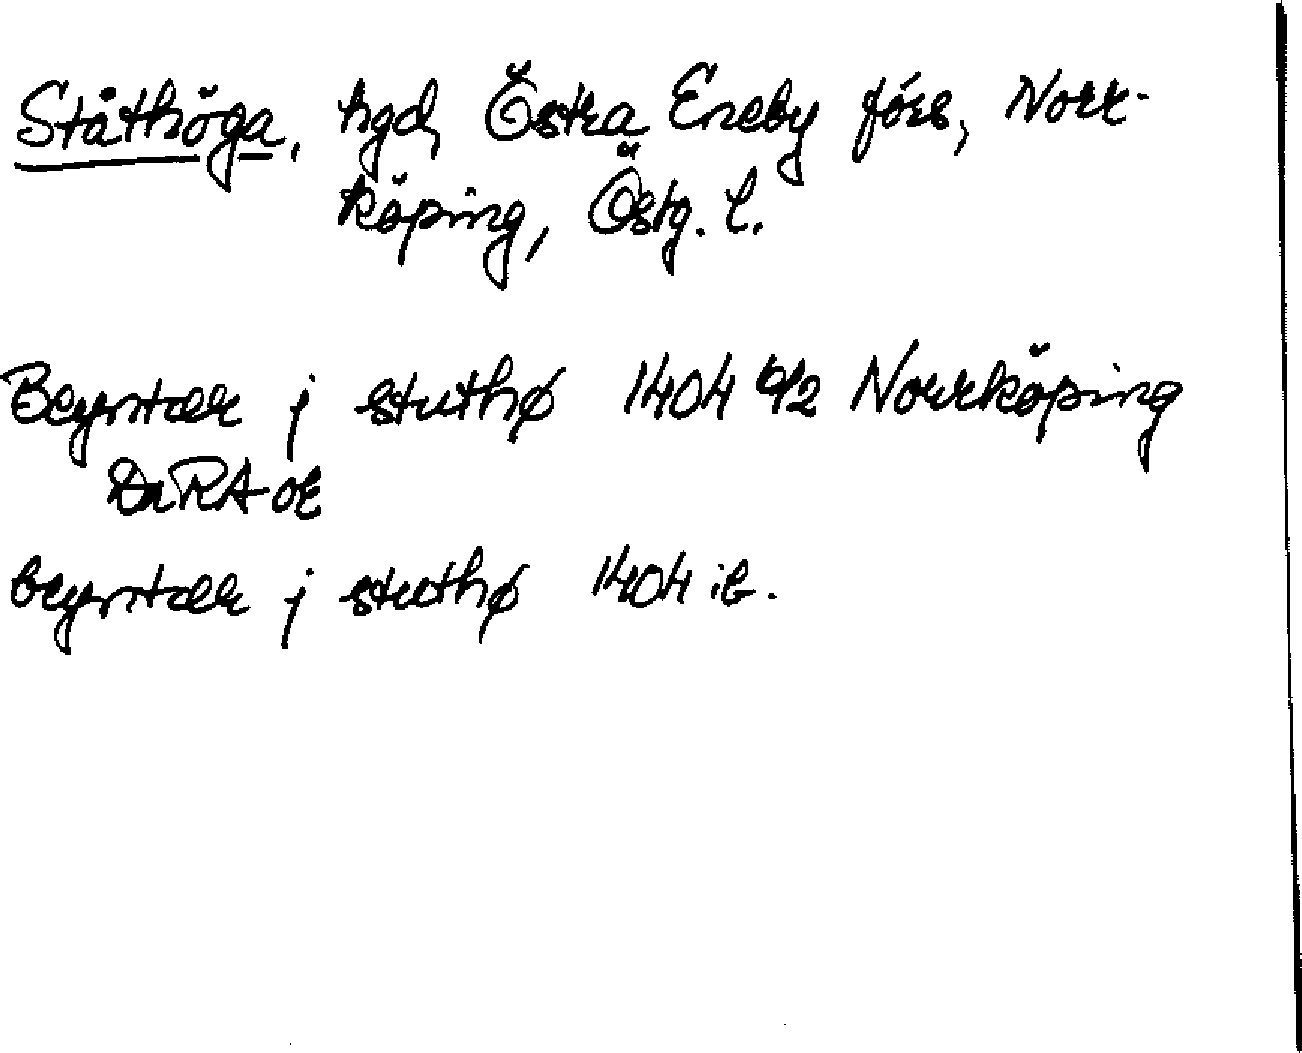 Ståthöga, hgd, Östra Eneby förs, Norr-
köping, Östg. l.
Beyntær j stuthø 1404 6/2 Norrköping
DaRA or
beyntær j stuthø 1404 ib.